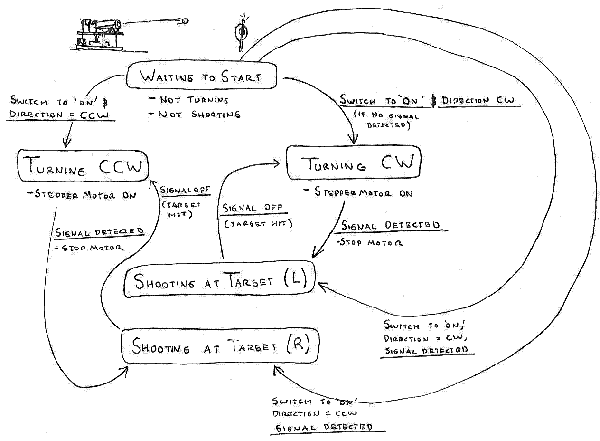 WAITING TO START
- NOT TURNING
- NOT SHOOTING
SWITCH TO 'ON' &
DIRECTION = CCW
SWITCH TO 'ON' & DIRECTION CW
(IF NO SIGNAL
DETECTED)
TURNING CCW
- STEPPER MOTOR ON
TURNING CW
- STEPPER MOTOR ON
SIGNAL OFF
(TARGET
HIT)
SIGNAL OFF
(TARGET HIT)
SIGNAL DETECTED
- STOP MOTOR
SIGNAL DETECTED
- STOP MOTOR
SHOOTING AT TARGET (L)
SHOOTING AT TARGET (R)
SWITCH TO 'ON',
DIRECTION = CW,
SIGNAL DETECTED
SWITCH TO 'ON'
DIRECTION = CCW
SIGNAL DETECTED